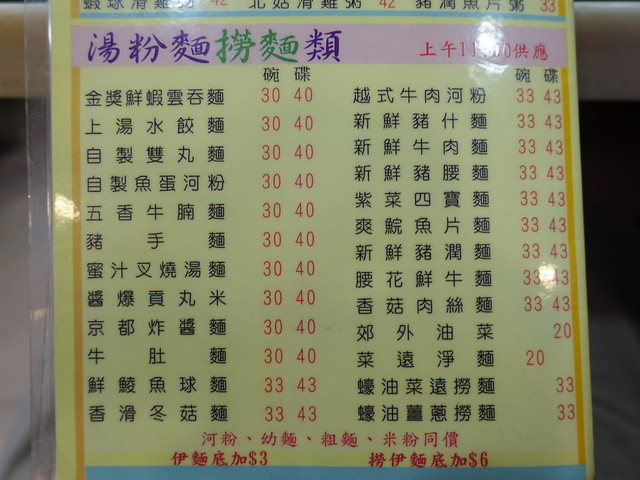 蝦球滑雞粥 42 北菇滑雞粥 42 豬潤魚片粥 33
湯粉麵撈麵類 上午11:00供應
碗 碟 碗 碟
金獎鮮蝦雲吞麵 30 40 越式牛肉河粉 33 43
上湯水餃麵 30 40 新鮮豬什麵 33 43
自製雙丸麵 30 40 新鮮牛肉麵 33 43
自製魚蛋河粉 30 40 新鮮豬腰麵 33 43
五香牛腩麵 30 40 紫菜四寶麵 33 43
豬手麵 30 40 爽鯇魚片麵 33 43
蜜汁叉燒湯麵 30 40 新鮮豬潤麵 33 43
醬爆貢丸米 30 40 腰花鮮牛麵 33 43
京都炸醬麵 30 40 香菇肉絲麵 33 43
牛肚麵 30 40 郊外油菜 20
鮮鯪魚球麵 33 43 菜遠淨麵 20
香滑冬菇麵 33 43 蠔油菜遠撈麵 33
蠔油薑蔥撈麵 33
河粉、幼麵、粗麵、米粉同價
伊麵底加$3 撈伊麵底加$6